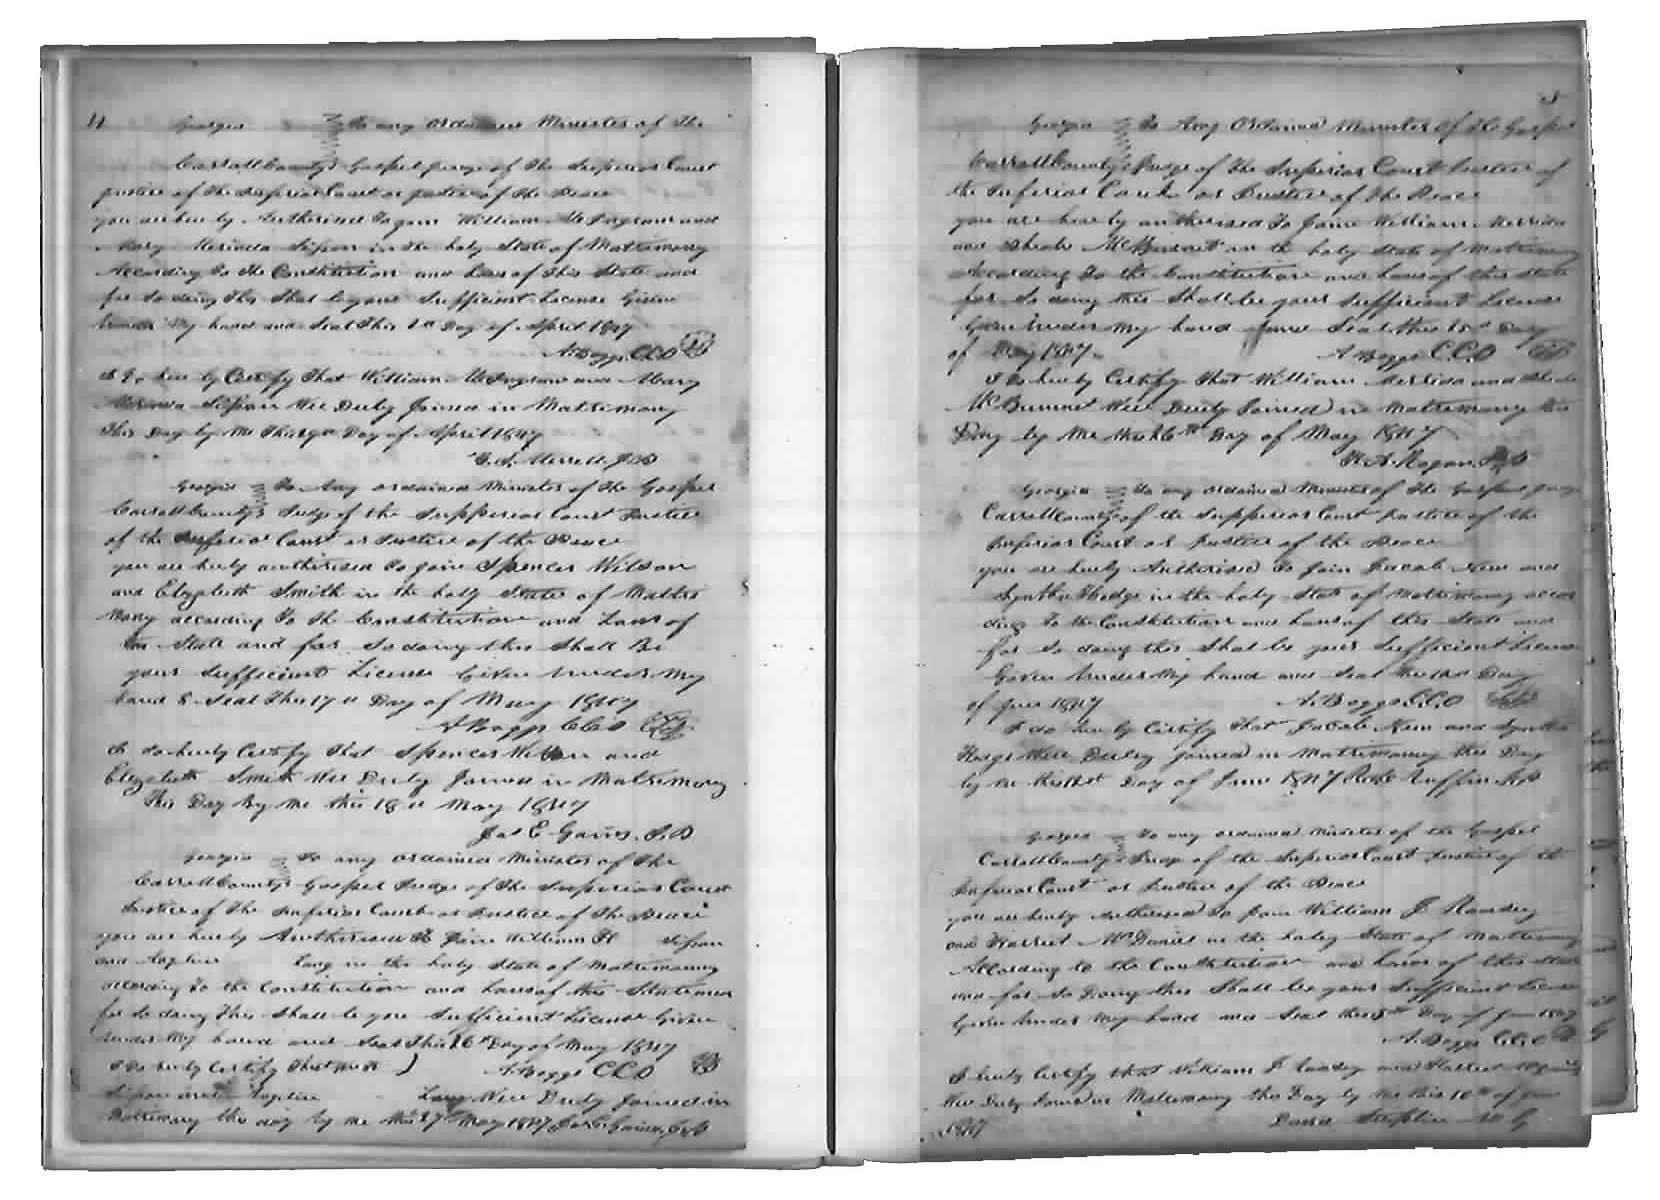 4
Georgia To any Ordained Minister of The
Carroll County Gospel Judge of The Superior Court
justice of The Inferior Court or justice of The Peace
you are here by Authorised To join William McIngram and
Mary Sisson in the holy State of Matrimony
According To The Constitution and Laws of This State and
for So doing This Shal be your Sufficient License Given
under My hand and Seal This Day of April 1847
A. Boggs C.C.O
I Do here by Certify That William McIngram and Mary
Sisson Wee Duly Joined in Matrimony
This Day by Me This Day of April 1847
Merrell J.P
Georgia To Any ordained Minister of The Gospel
Carroll County Judge of the Supperior Court Justice
of the Inferior Court or Justice of the Peace
you are hereby authorised To join Spencer Wilson
and Elizabeth Smith in the holy State of Matri
mony according To The Constitution and Laws of
this State and for So doing this Shall Be
your Sufficient License Given under My
hand & Seal This 17th Day of May 1847
A Boggs C C O
I do hereby Certify That Spencer Wilson and
Elizabeth Smith Wee Duly Joined in Matrimony
This Day By Me this 18th May 1847
Jas E Gaines J.P
Georgia To any ordained Minister of The
Carroll County Gospel Judge of The Superior Court
Justice of The Inferior Court or Justice of The Peace
you are hereby Authorised To Join William H Sisson
and Long in the holy State of Matrimony
according To the Constitution and Laws of this State and
for So doing This Shall be your Sufficient License Given
under My hand and Seal This 26th Day of May 1847
I do hereby Certify That A. Boggs C.C.O
Sisson and Long Wee Duly Joined in
Matrimony this day by me this 27th May 1847 Jas E Gaines J.P
5
Georgia To Any Ordained Minister of The Gospel
Carroll County Judge of The Superior Court Justice of
the Inferior Court or Justice of The Peace
you are here by authorised To Joine William Merrida
and McBurnet in the holy State of Matrimony
According To the Constitution and Laws of this State
for So doing this Shall be your Sufficient License
Given Under My hand and Seal this 15th Day
of May 1847. A Boggs C.C.O
I Do hereby Certify That William Merrida and
McBurnet Wee Duly Joined in Matrimony this
Day by Me this 16th Day of May 1847
Rogan J.P
Georgia To any ordained Minister of The Gospel Judge
Carroll County of the Supperior Court Justice of the
Inferior Court or Justice of the Peace
you are hereby Authorised To Join Jacob New and
Hodge in the holy State of Matrimony accor
ding To the Constitution and Laws of this State and
for So doing this Shal be your Sufficient License
Given Under My hand and Seal Day
of June 1847 A. Boggs C.C.O
I do hereby Certify That Jacob New and
Hodge Were Duley joined in Matrimony this Day
by Me Day of June 1847 Ruffin J.P
Georgia To any ordained Minister of the Gospel
Carroll County Judge of the Superior Court Justice of the
Inferior Court or Justice of the Peace
you are hereby Authorised To Join William J Ramsey
and Harriet McDaniel in the holey State of Matrimony
According to the Constitution and Laws of this State
and for So Doing this Shall be your Sufficient License
Given Under My hand and Seal Day of June 1847
A. Boggs C.C.O
I hereby Certify that William J Ramsey and Harriet McDaniel
Wee Duly Joined in Matrimony this Day by Me this 10th of June
1847
David Stripling M G